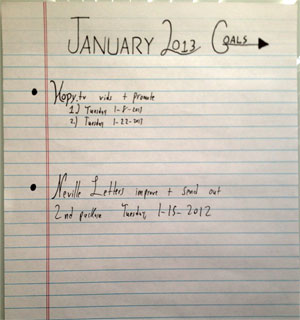 JANUARY 2013 GOALS
Kopy.tv vids + promote
1) Tuesday 1-8-2013
2) Tuesday 1-22-2013
Neville Letters improve + send out
2nd package Tuesday, 1-15-2012